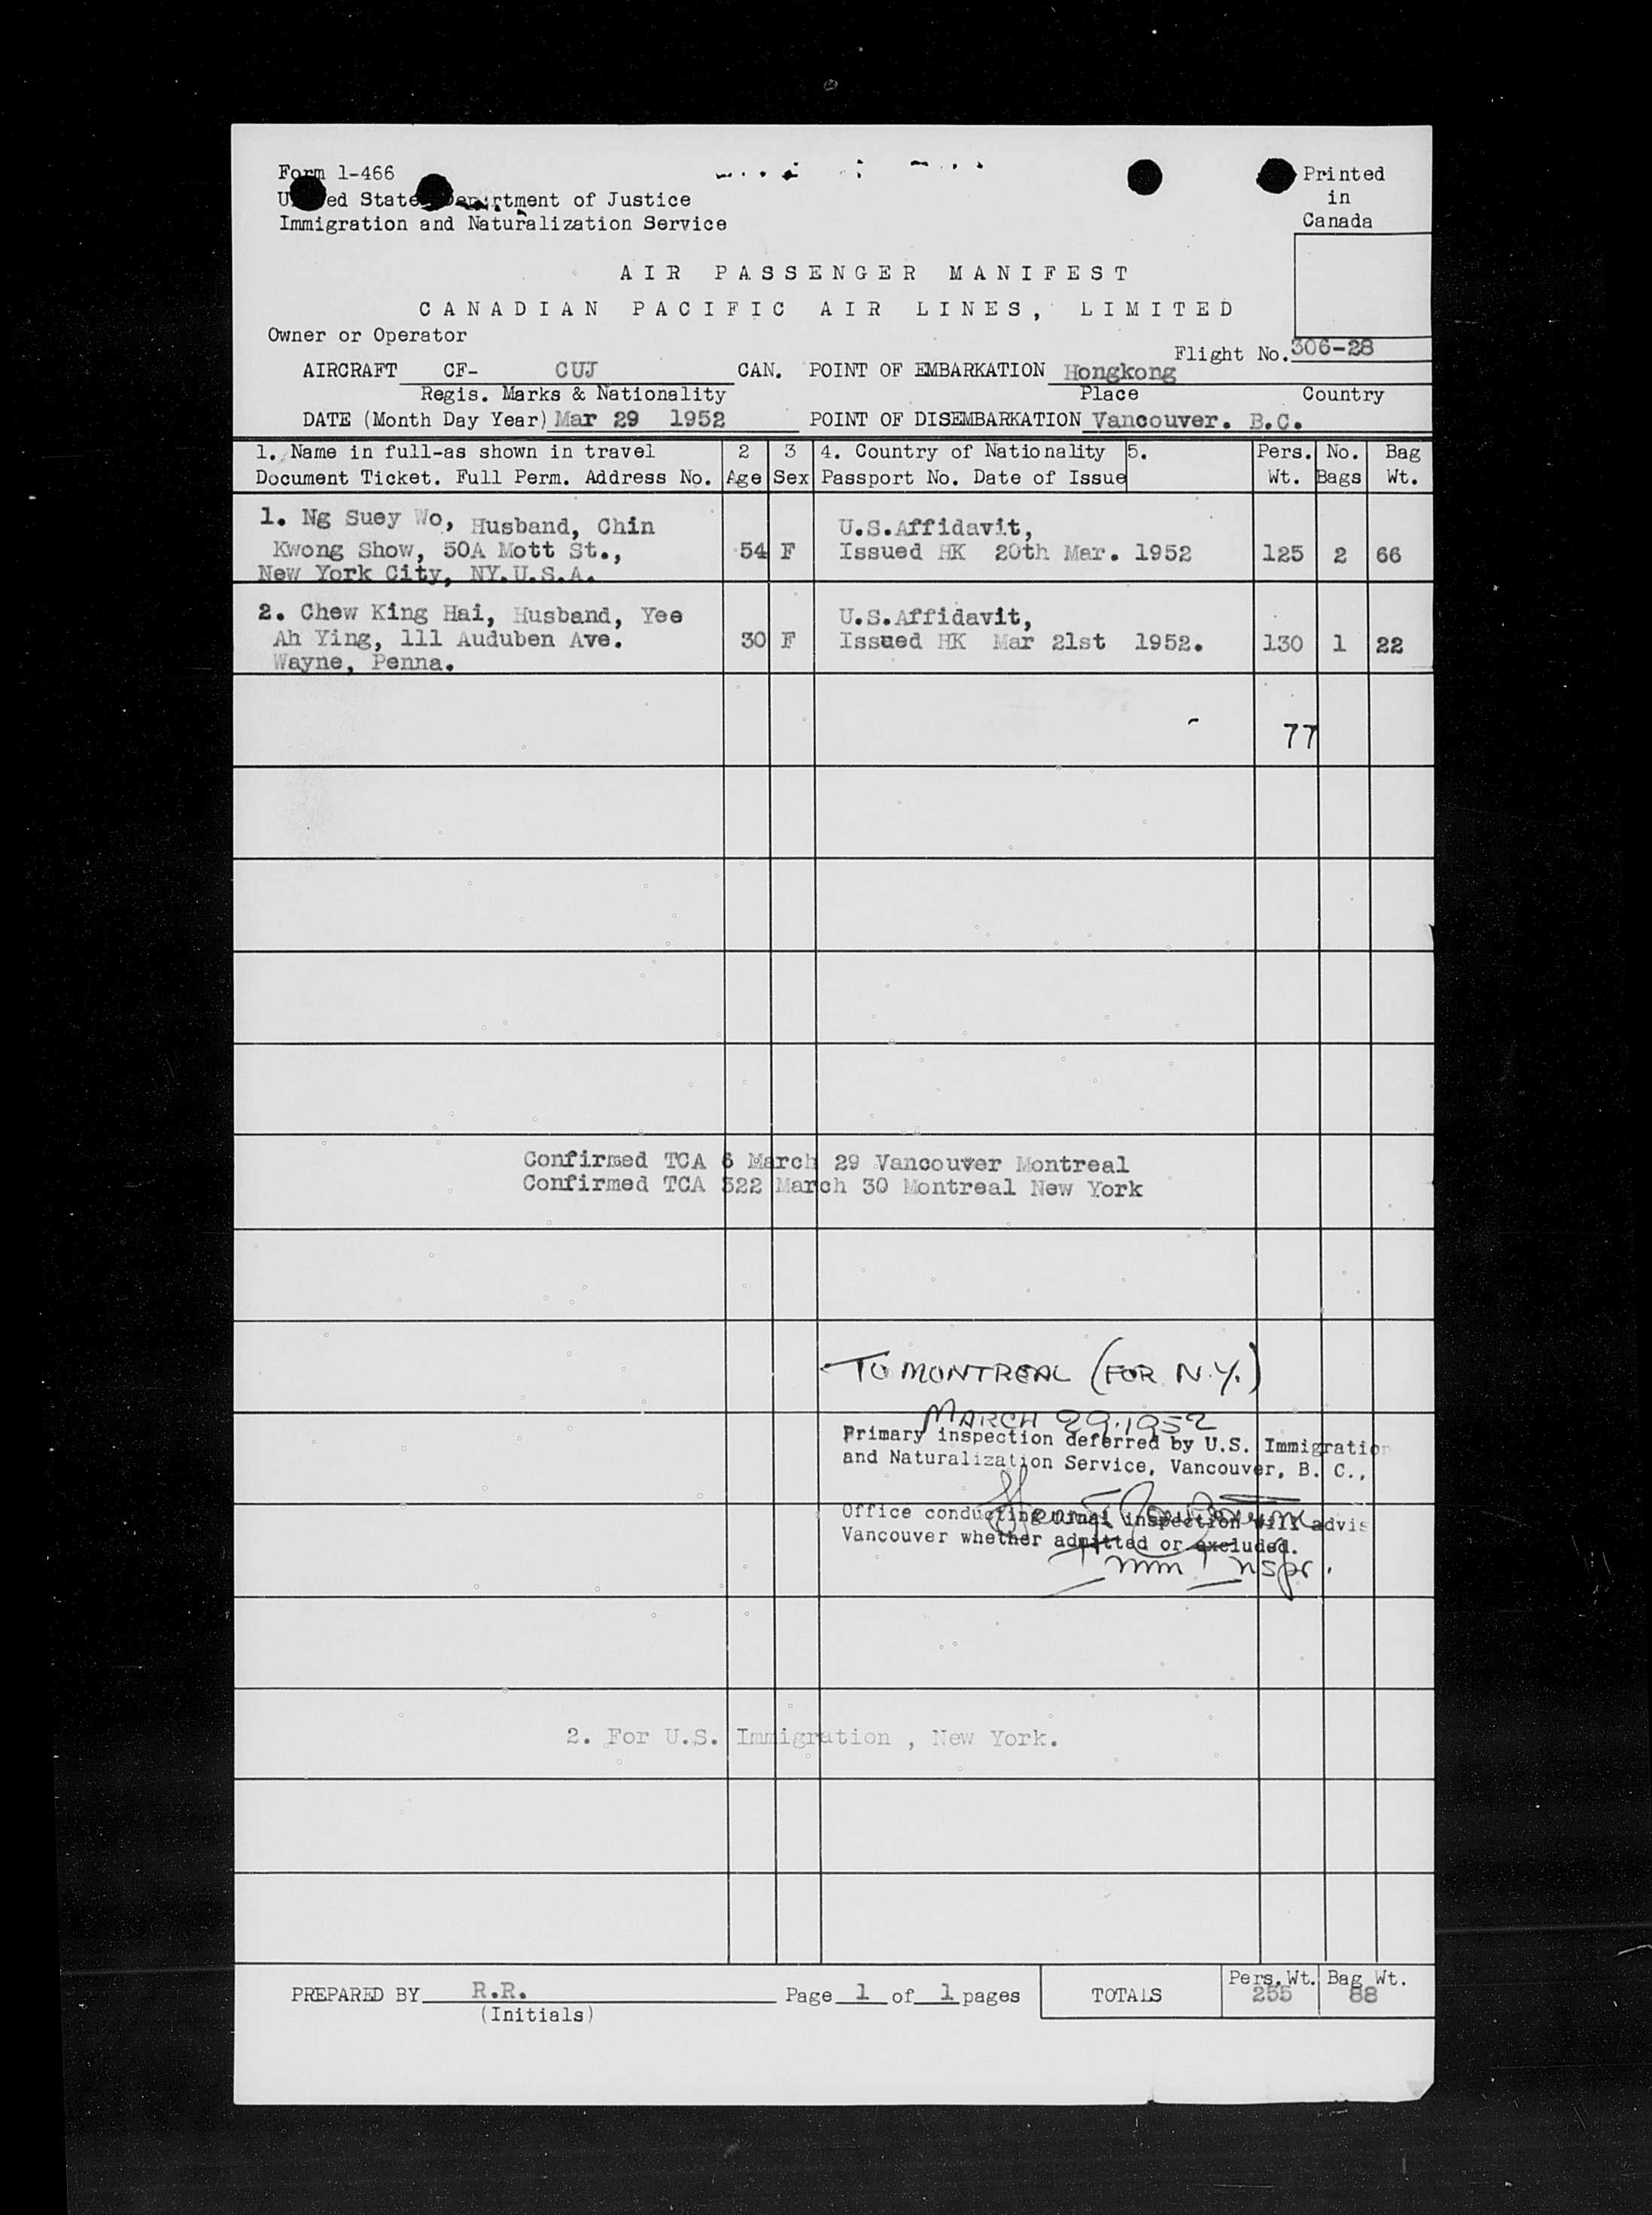 Form 1-466
United States Department of Justice
Immigration and Naturalization Service
Printed
in
Canada
AIR PASSENGER MANIFEST
CANADIAN PACIFIC AIR LINES, LIMITED
Owner or Operator
Flight No. 306-28
AIRCRAFT CF- CUJ CAN. POINT OF EMBARKATION Hongkong
Regis. Marks & Nationality Place Country
DATE (Month Day Year) Mar 29 1952 POINT OF DISEMBARKATION Vancouver. B.C.
1. Name in full-as shown in travel 2 3 4. Country of Nationality 5. Pers. No. Bag
Document Ticket. Full Perm. Address No. Age Sex Passport No. Date of Issue Wt. Bags Wt.
1. Ng Suey Wo, Husband, Chin U.S.Affidavit,
Kwong Show, 50A Mott St., 54 F Issued HK 20th Mar. 1952 125 2 66
New York City, NY.U.S.A.
2. Chew King Hai, Husband, Yee U.S.Affidavit,
Ah Ying, 111 Auduben Ave. 30 F Issued HK Mar 21st 1952. 130 1 22
Wayne, Penna.
77
Confirmed TCA 6 March 29 Vancouver Montreal
Confirmed TCA 322 March 30 Montreal New York
TO MONTREAL (FOR N.Y.)
MARCH 29.1952
Primary inspection deferred by U.S. Immigration
and Naturalization Service, Vancouver, B. C.,
Office conducting inspection will advis
Vancouver whether admitted or excluded.
Imm Inspr.
2. For U.S. Immigration , New York.
PREPARED BY R.R. Page 1 of 1 pages TOTALS Pers. Wt. Bag Wt.
(Initials) 255 88